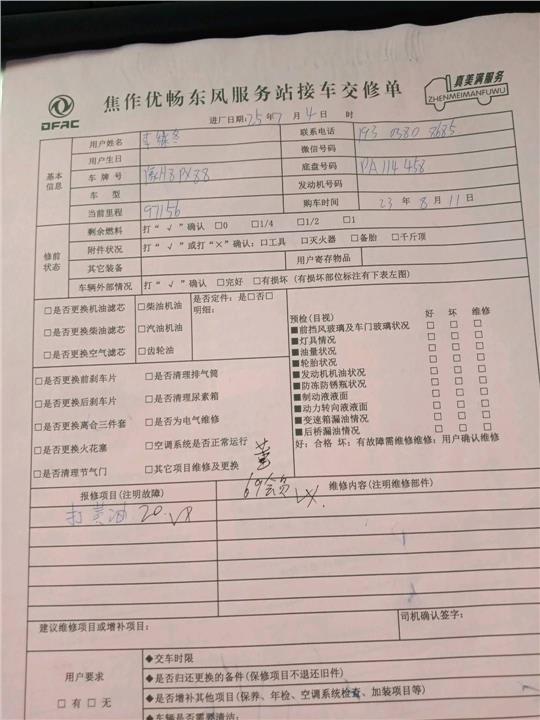 DFAC
焦作优畅东风服务站接车交修单
真美满服务
ZHENMEIMANFUWU
进厂日期:25年7月4日 时
基本信息
用户姓名
联系电话 193 0380 8685
用户生日
微信号码
车牌号
底盘号码 PA114458
车型
发动机号码
当前里程 97156
购车时间 23年8月11日
修前状态
剩余燃料 打“√”确认 □0 □1/4 □1/2 □1
附件状况 打“√”或打“×”确认：□工具 □灭火器 □备胎 □千斤顶
其它装备
用户寄存物品
车辆外部情况 打“√”确认 □完好 □有损坏 (有损坏部位标注有下表左图)
□是否更换机油滤芯 □柴油机油
□是否更换柴油滤芯 □汽油机油
□是否更换空气滤芯 □齿轮油
是否定件：是□否□
明细:
□是否更换前刹车片 □是否清理排气筒
□是否更换后刹车片 □是否清理尿素箱
□是否更换离合三件套 □是否为电气维修
□是否更换火花塞 □空调系统是否正常运行
□是否清理节气门 □其它项目维修及更换
预检(目视) 好 坏 维修
■前挡风玻璃及车门玻璃状况 □ □ □
■灯具情况 □ □ □
■油量状况 □ □ □
■轮胎状况 □ □ □
■发动机机油状况 □ □ □
■防冻防锈瓶状况 □ □ □
■制动液液面 □ □ □
■动力转向液液面 □ □ □
■变速箱漏油情况 □ □ □
■后桥漏油情况 □ □ □
好：合格 坏：有故障需维修维修：用户确认维修
报修项目(注明故障)
维修内容(注明维修部件)
打黄油 20
建议维修项目或增补项目:
司机确认签字:
用户要求
□有□无
◆交车时限
◆是否归还更换的备件(保修项目不退还旧件)
◆是否增补其他项目(保养、年检、空调系统检查、加装项目等)
◆车辆是否需要清洁: